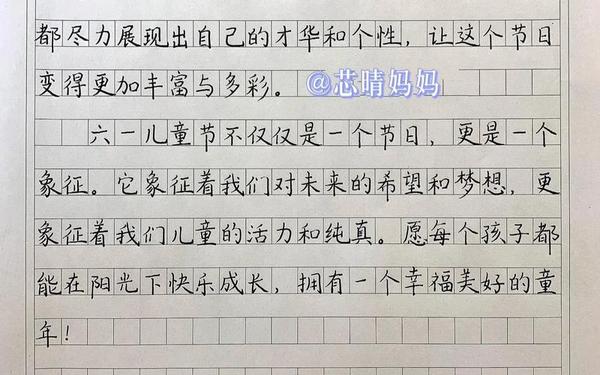 都尽力展现出自己的才华和个性，让这个节日
变得更加丰富与多彩。 @芯晴妈妈
六一儿童节不仅仅是一个节日，更是一个
象征。它象征着我们对未来的希望和梦想，更
象征着我们儿童的活力和纯真。愿每个孩子都
能在阳光下快乐成长，拥有一个幸福美好的童
年！